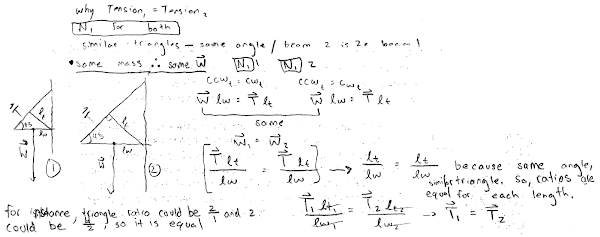 why Tension₁ = Tension₂
N₁ for both
similar triangles - same angle / beam 2 is 2x beam 1
• same mass ∴ same W⃗
N₁ 1 N₁ 2
ccwₜ = cwₜ ccwₜ = cwₜ
W⃗ lw = T⃗ lₜ W⃗ lw = T⃗ lₜ
same
[T⃗ lₜ / lw = T⃗ lₜ / lw] → lₜ / lw = lₜ / lw because same angle,
similar triangle. So, ratios are
equal for each length.
T⃗₁ lₜ₁ / lw₁ = T⃗₂ lₜ₂ / lw₂ → T⃗₁ = T⃗₂
lₜ
lw
W⃗
①
lₜ
lw
W⃗
②
for instance, triangle ratio could be 2/1 and 2
could be, so it is equal